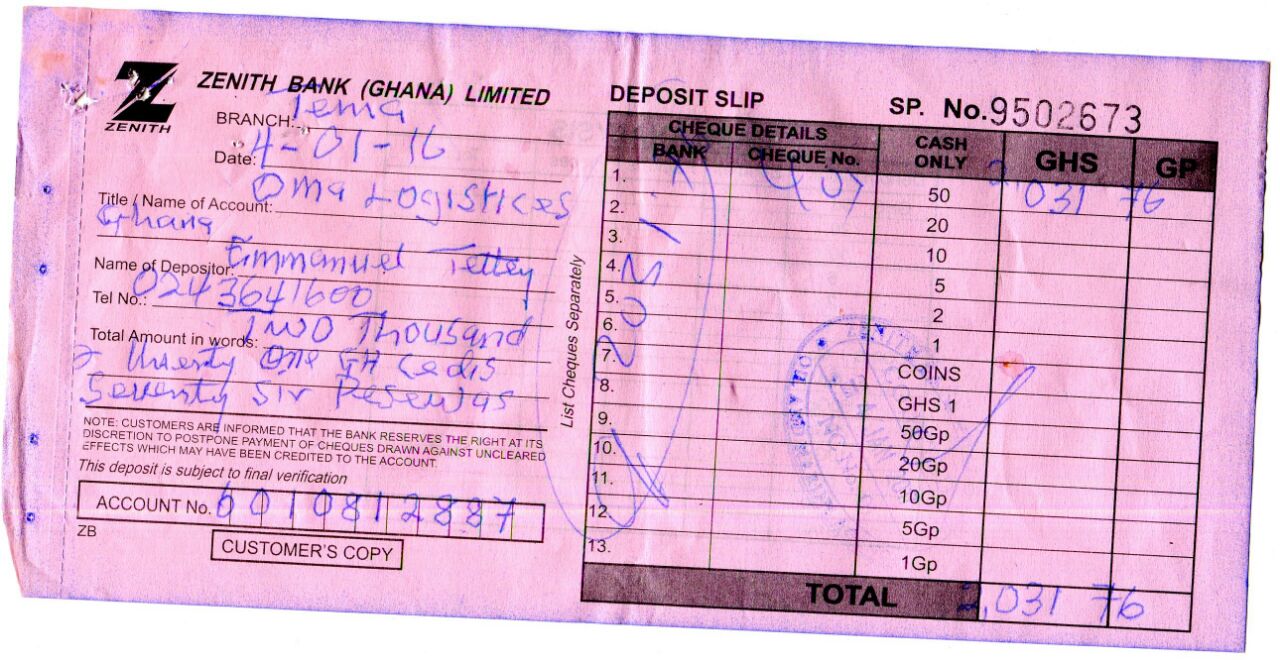 ZENITH
ZENITH BANK (GHANA) LIMITED
BRANCH: Tema
Date: 4-01-16
Title / Name of Account: Oma Logistices
Ghana
Name of Depositor: Emmanuel Tettey
Tel No.: 0243641600
Total Amount in words: Two Thousand
One GH Cedis
Seventy Six Pesewas
NOTE: CUSTOMERS ARE INFORMED THAT THE BANK RESERVES THE RIGHT AT ITS
DISCRETION TO POSTPONE PAYMENT OF CHEQUES DRAWN AGAINST UNCLEARED
EFFECTS WHICH MAY HAVE BEEN CREDITED TO THE ACCOUNT.
This deposit is subject to final verification
ACCOUNT No. 6010812887
ZB
CUSTOMER'S COPY
List Cheques Separately
DEPOSIT SLIP
SP. No. 9502673
CHEQUE DETAILS
BANK CHEQUE No. CASH ONLY GHS GP
1. 50 2,031 76
2. 20
3. 10
4. 5
5. 2
6. 1
7. COINS
8. GHS 1
9. 50Gp
10. 20Gp
11. 10Gp
12 5Gp
13. 1Gp
TOTAL 2,031 76